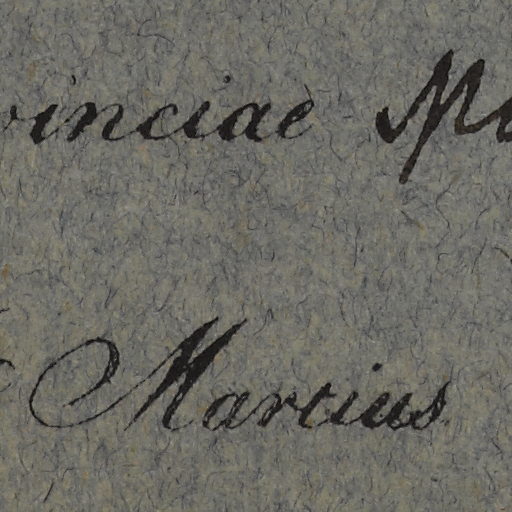 vinciae M
Martius